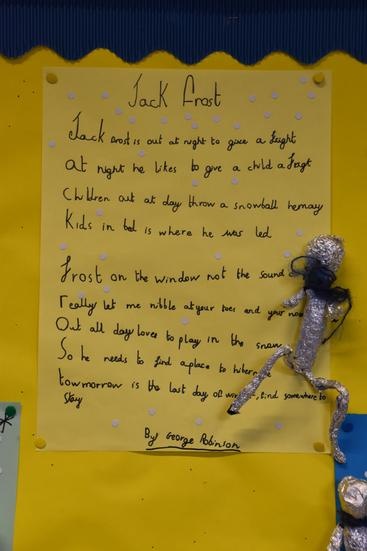 Jack Frost
Jack Frost is out at night to give a fright
at night he likes to give a child a fragt
Children out at day throw a snowball he may
Kids in bed is where he was led
Frost on the window not the sound
Really let me nibble at your toes and your
Out all day loves to play in the snow
So he needs to find a place to
towmorrow is the last day of find somewhere to
Stay
By George Robinson